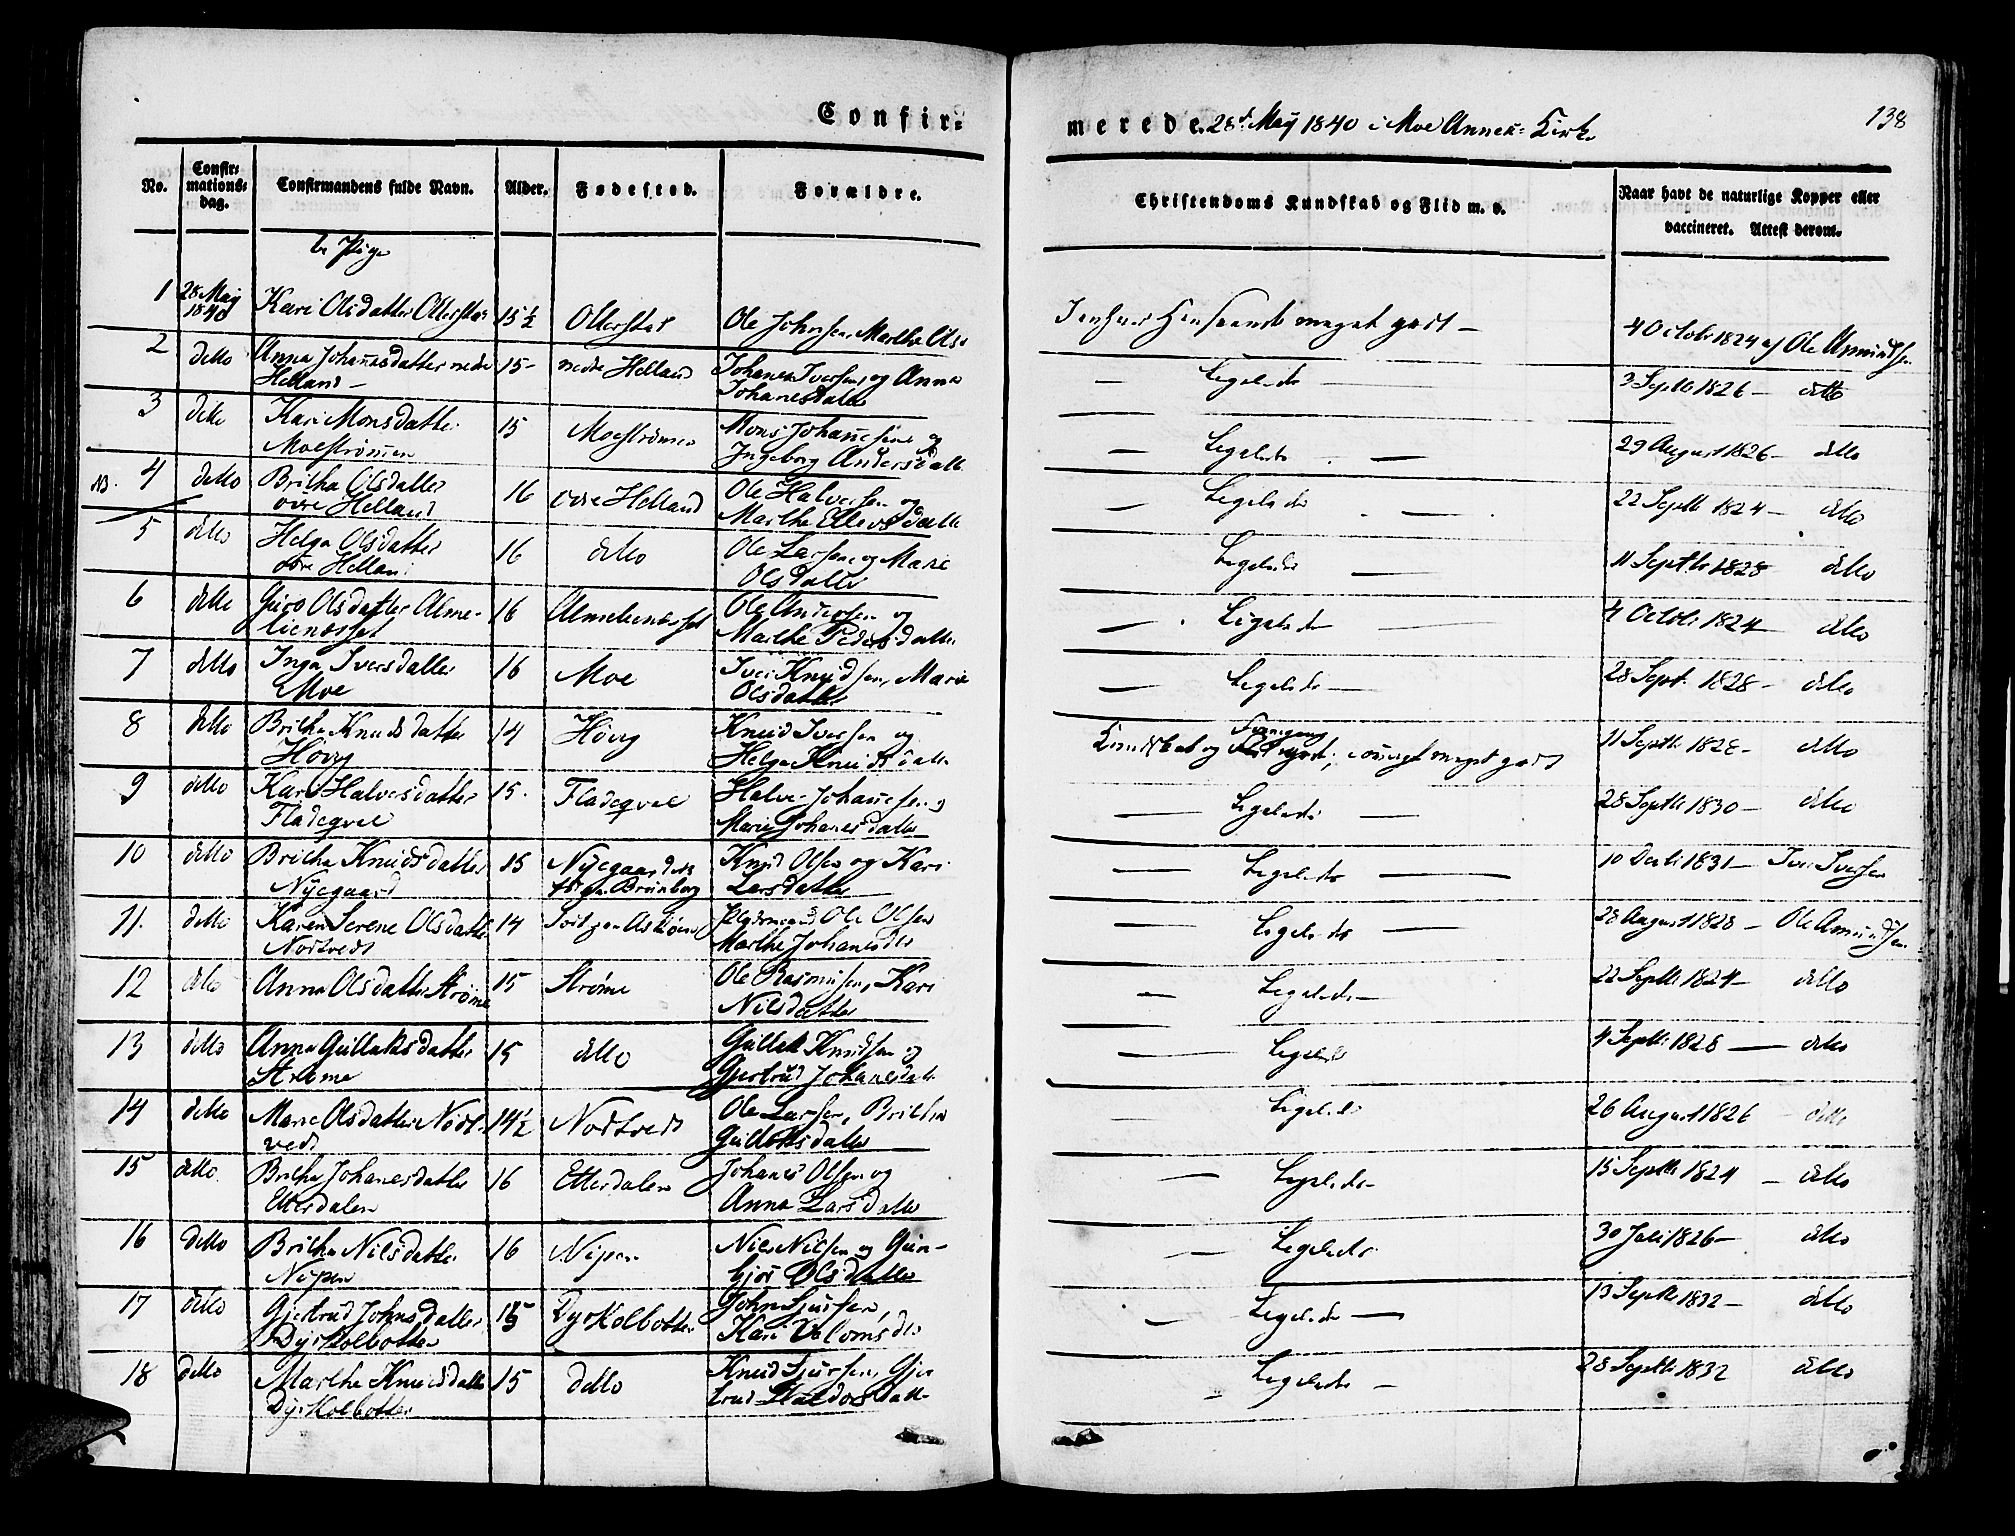 Confir- merede 28d. Maij 1840 i Moe Annex Kirke 138
No. Confir-mations-dag. Confirmandens fulde Navn. Alder. Fødested. Forældre. Christendoms Kundskab og Flid m. v. Naar havt de naturlige Kopper eller vaccineret. Attest derom.
b, Piger
1 28 Maij 1840 Kari Olsdatter Otterstad 15½ Otterstad Ole Johnsen, Marthe meget godt — 4 Octobr 1824 af Ole Amundsen
2 detto Anna Johanesdatter nedre Helland — 15 - nedre Helland Johanes Iversen, og Anna Johanesdatter — Ligeledes — 3 Septbr 1826 — detto
3 detto Kari Monsdatter Moestrømen 15 Moestrømen Mons Johanesen og Ingeborg Andersdatter — Ligeledes — 29 August 1826 — detto
NB. 4 detto Britha Olsdatter øvre Helland 16 øvre Helland Ole Halversen og Marthe Ellevsdatter — Ligeledes — 22 Septbr 1824 — detto
5 detto Helga Olsdatter øvre Helland 16 detto Ole Larsen og Marie Olsdatter Ligeledes — 11 Septbr 1828 detto
6 detto Guro Olsdatter Alme- 16 Ole Andersen og Marthe Pedersdatter — Ligeledes — 4 Octobr 1824 — detto
7 detto Inga Iversdatter Moe 16 Moe Iver Knudsen, Marie Olsdatter — Ligeledes — 28 Sept. 1828 — detto
8 detto Britha Knudsdatter Hovg 14 Hovg Knud Iversen og Helga Knudsdatter Kundskab og Fremgang godt, meget godt 11 Septbr 1828 — detto
9 detto Kari Halversdatter Fladeqval 15. Fladeqval Halver Johanesen, Marie Johanesdatter — Ligeledes — 28 Septbr 1830 — detto
10 detto Britha Knudsdatter Nyegaard 15 Nyegaard Knud Olsen og Kari Larsdatter — Ligeledes — 10 Decbr 1831 — Iver Iversen
11. detto Karen Serene Olsdatter Nodtvedt 14 Ole Olsen Marthe Johanesdtr — Ligeledes — 28 August 1828 — Ole Amundsen
12 detto Anna Olsdatter Strøme 15 Strøme Ole Rasmusen, Kari Nilsdatter — Ligeledes — 22 Septbr 1824 — detto
13 detto Anna Gullaksdatter Strøme 15 detto Gullak Knudsen og Gjertrud Johanesdatter — Ligeledes 4 Septbr 1828 — detto
14 detto Marie Olsdatter Nodt-vedt 14½ Nodtvedt Ole Larsen, Britha Gullaksdatter — Ligeledes 26 August 1826 — detto
15 detto Britha Johanesdatter Etterdalen 16 Etterdalen Johanes Olsen og Anna Larsdatter — Ligeledes — 15 Septbr 1824 — detto
16 detto Britha Nilsdatter Nipen 16 Nipen Nils Nilsen og Gun-bjør Olsdatter — Ligeledes 30 Juli 1826 — detto
17 detto Gjertrud Johnsdatter Dyrkolbotten 15 Dyrkolbotten John Sjursen, Kari — Ligeledes — 13 Septbr 1832 — detto
18 detto Marthe Knudsdatter Dyrkolbotten 15 detto Knud Sjursen, Gjer-trud Haldorsdatter — Ligeledes — 28 Septbr 1832 detto